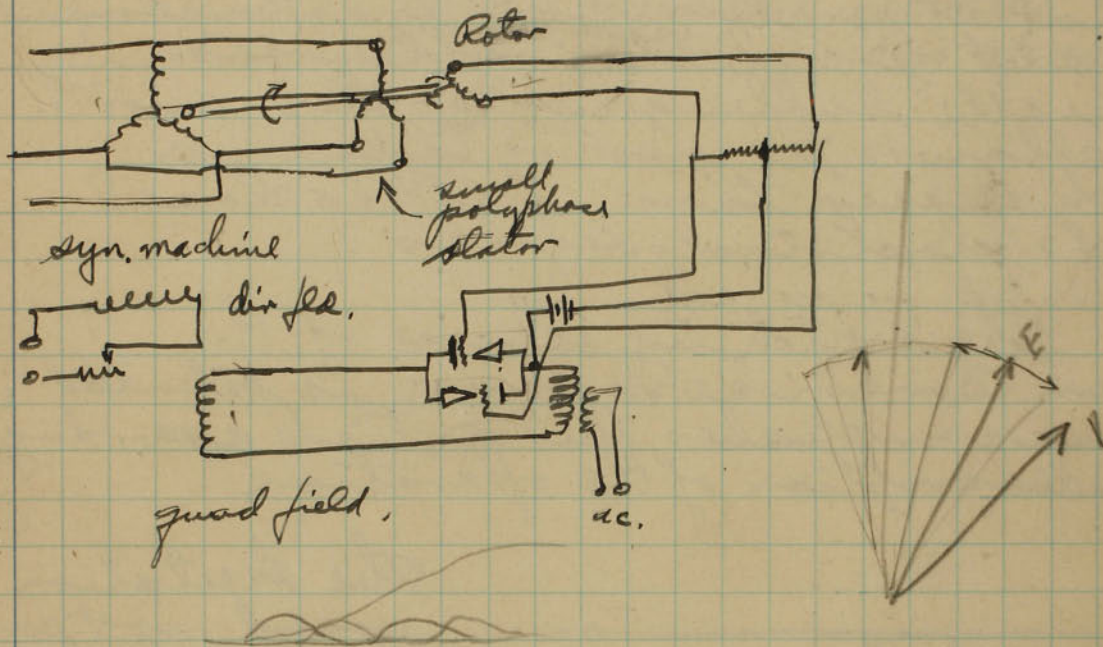 Rotor
small
polyphase
stator
syn. machine
quad field.
E